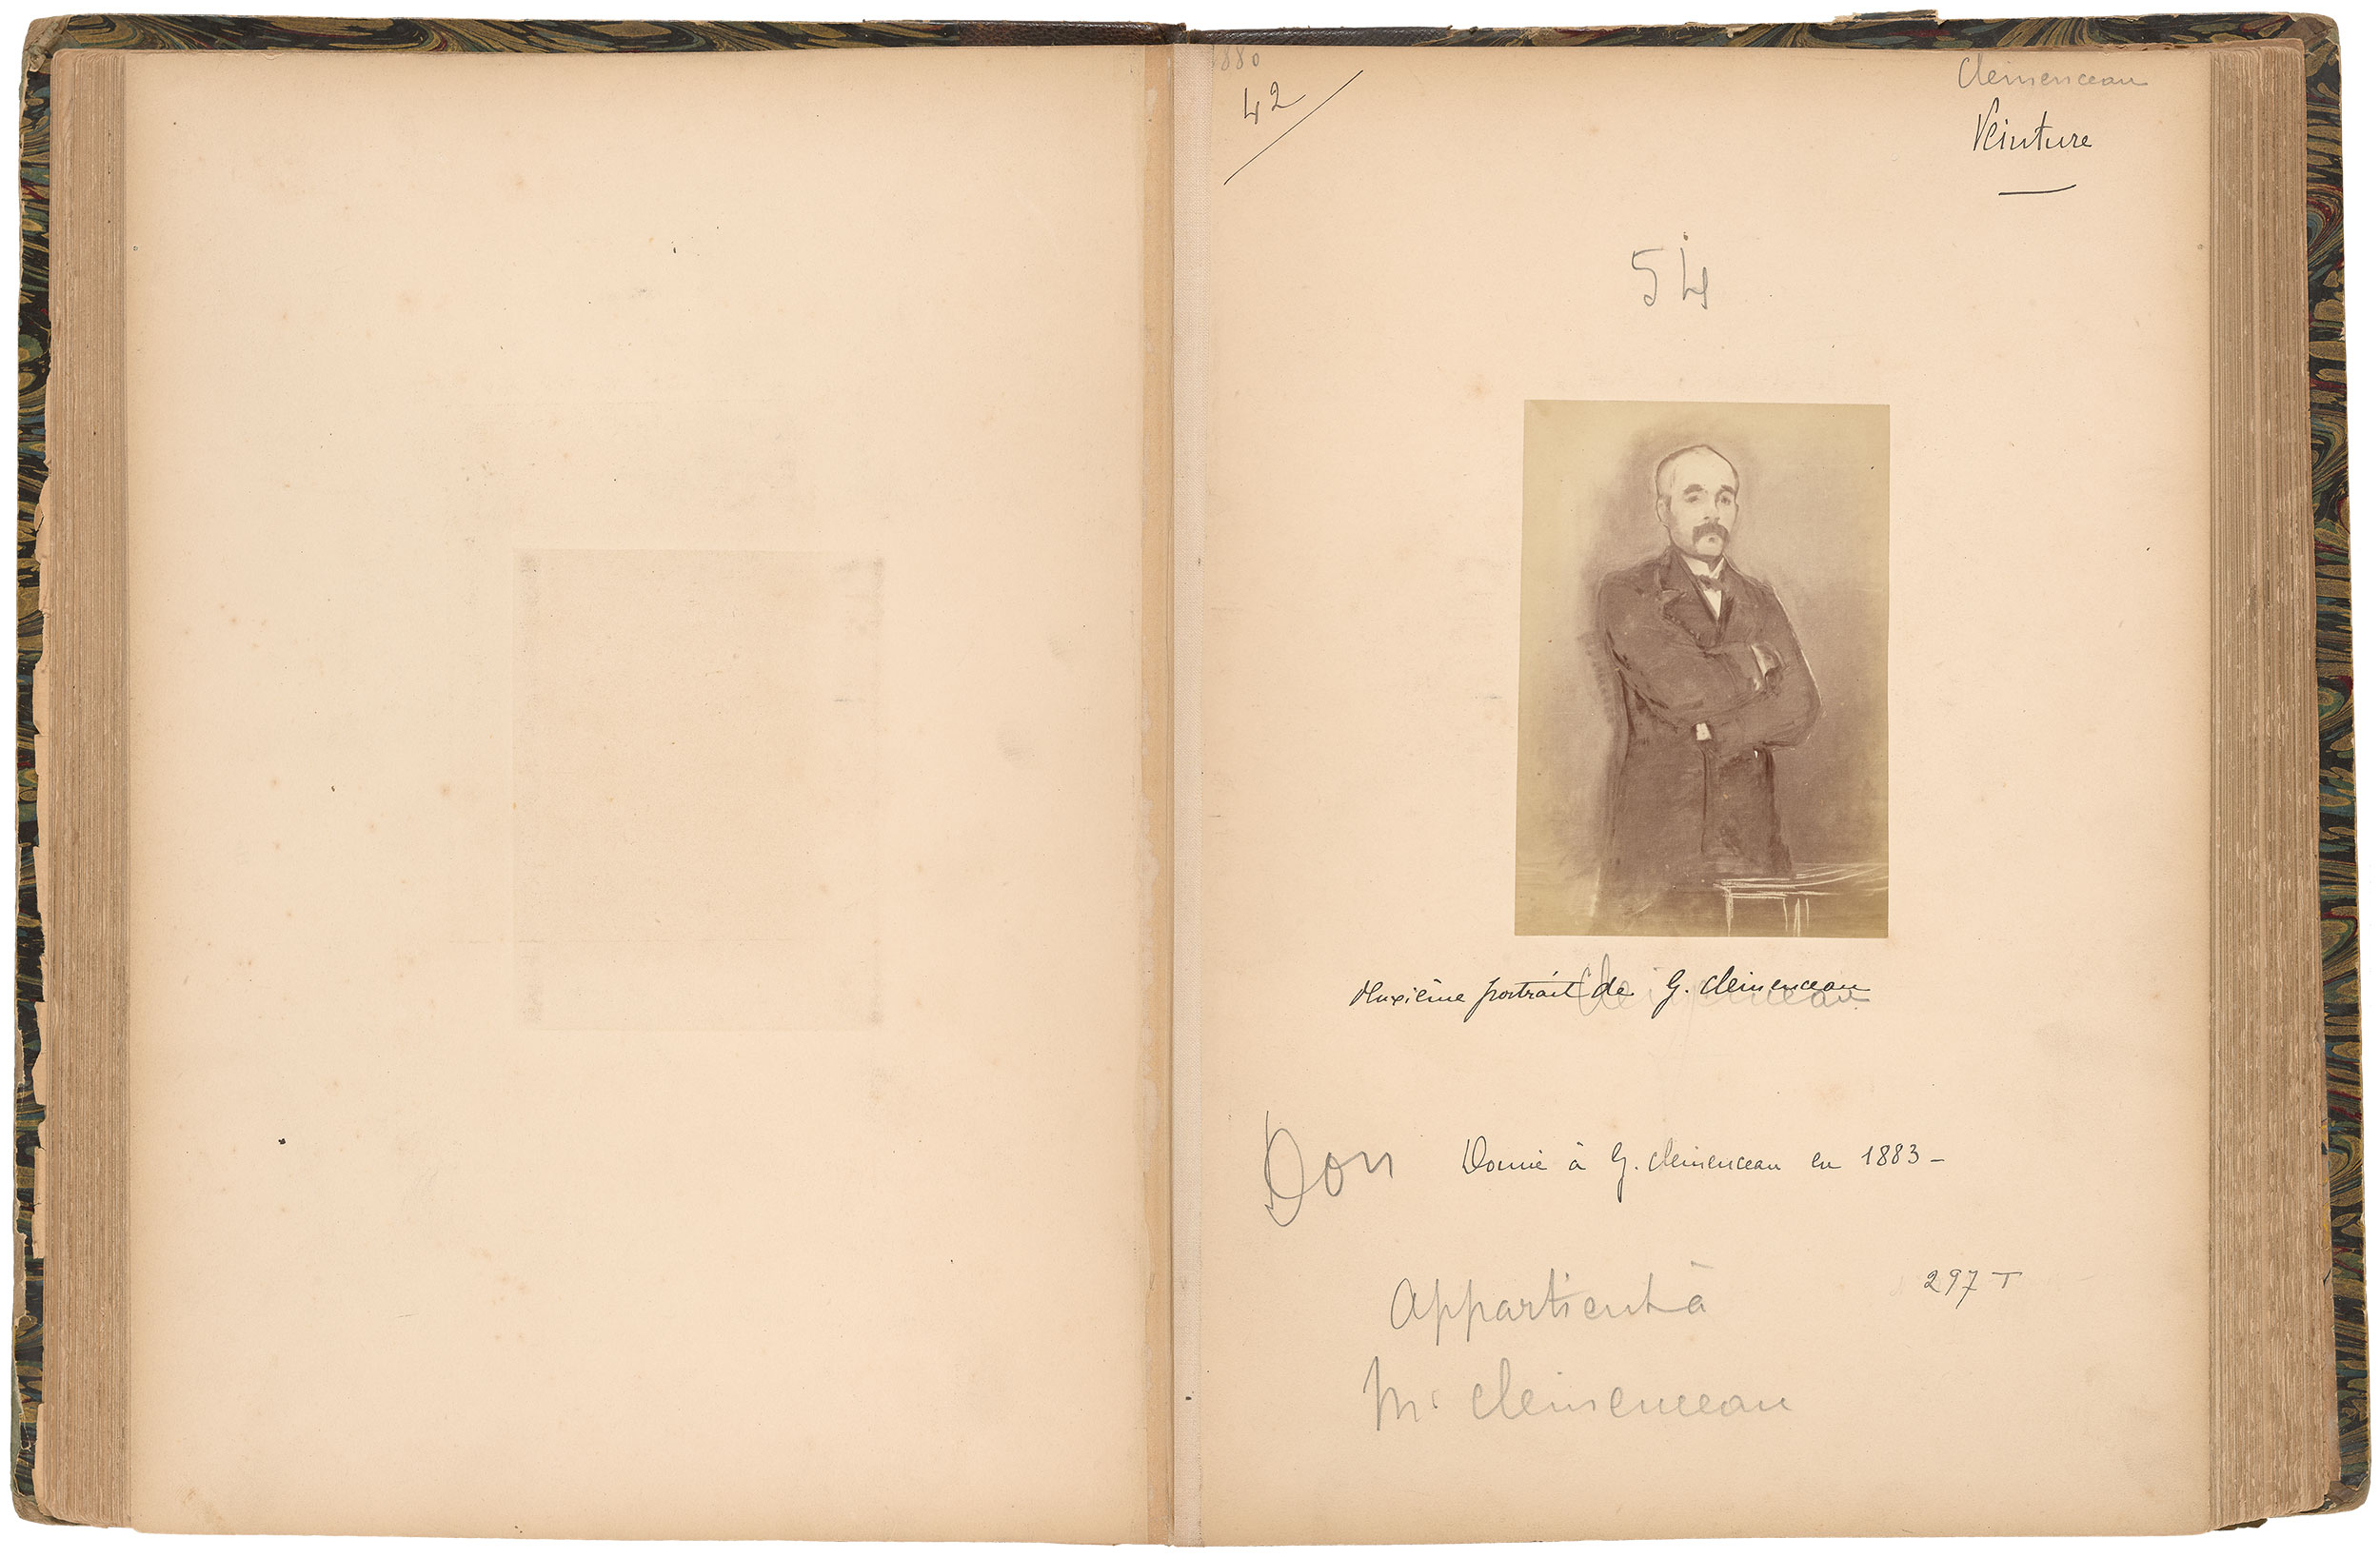 1880
42
Clemenceau
Peinture
54
deuxième portrait de G. Clemenceau
Clemenceau
Don
Donné à G. Clemenceau en 1883 -
297 T
appartient à
Mr Clemenceau